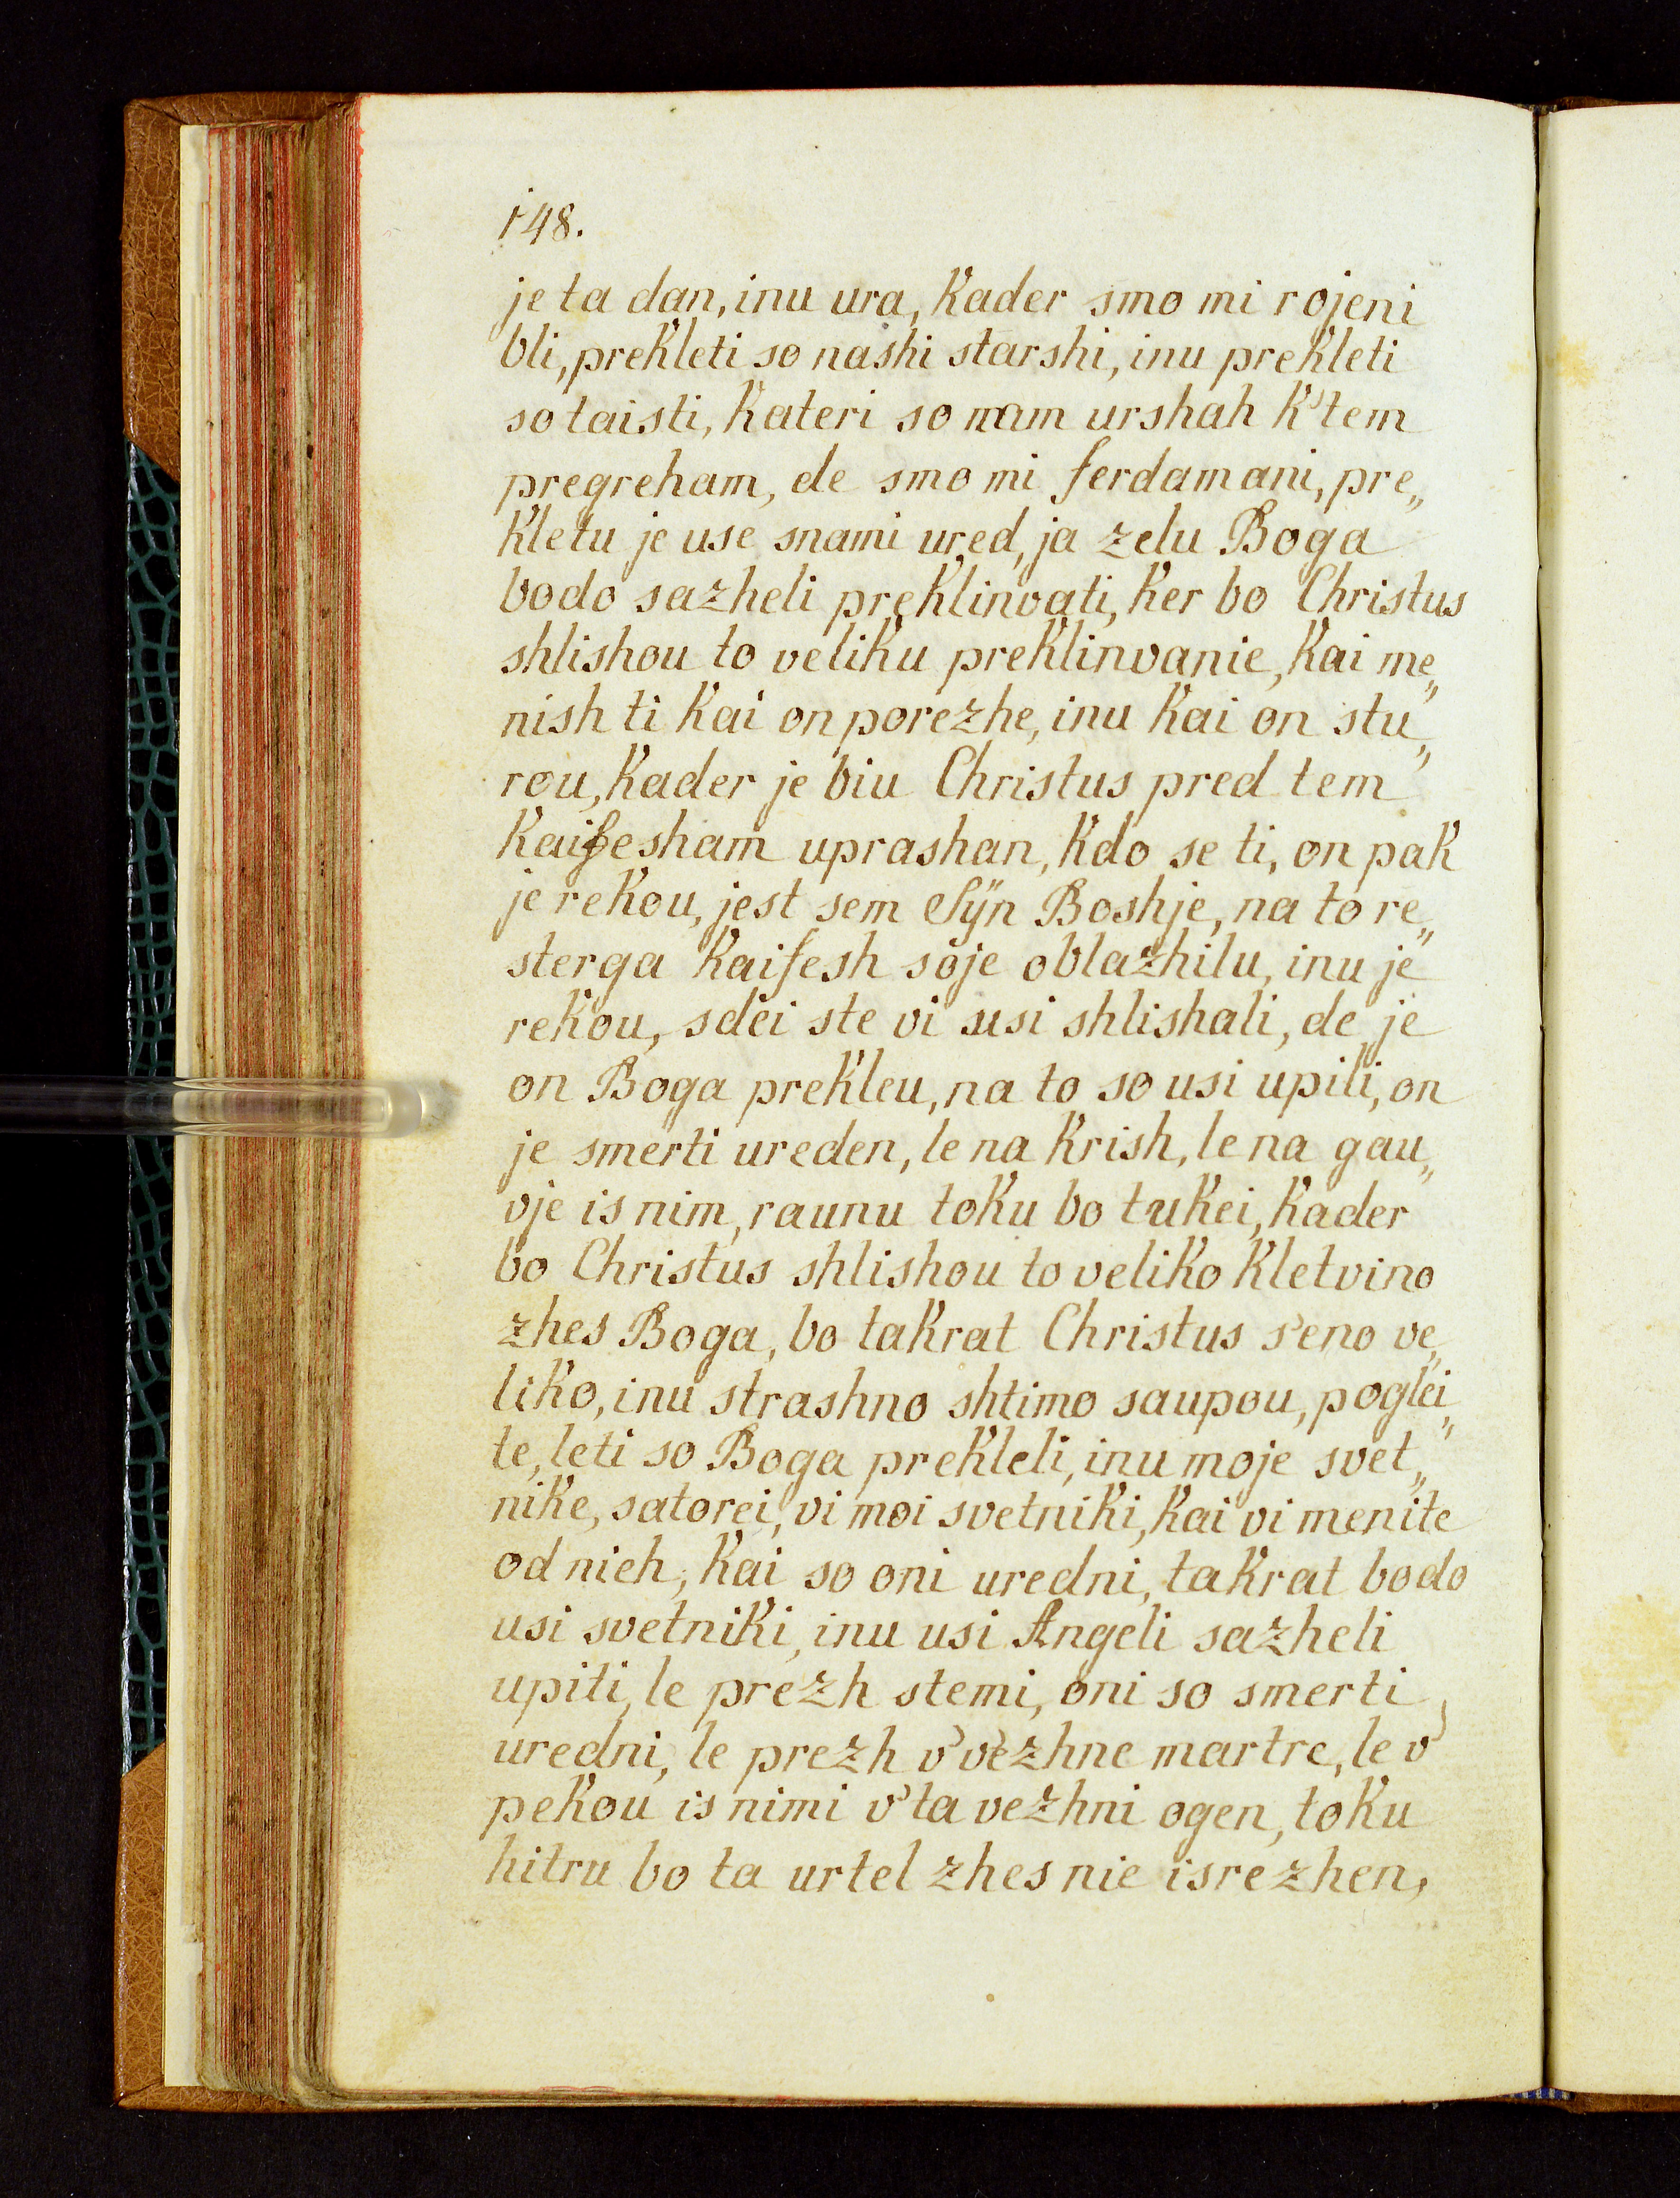 148.
je ta dan, inu ura, kader smo mi rojeni
bli, prekleti so nashi starshi, inu prekleti
so taisti, kateri so nam urshah k'tem
pregreham, de smo mi ferdamani, pre„
kletu je use snami ured, ja zelu Boga
bodo sazheli preklinvati, ker bo Christus
shlishou to veliku preklinvanie, kai me„
nish ti kai on porezhe, inu kai on stu„
rou, kader je biu Christus pred tem
kaifesham uprashan, kdo se ti, on pak
je rekou, jest sem Sÿn Boshje, na to re„
sterga kaifesh soje oblazhilu, inu je
rekou, sdei ste vi usi shlishali, de je
on Boga prekleu, na to so usi upili, on
je smerti ureden, le na krish, le na gau„
vje is nim, raunu toku bo tukei, kader
bo Christus shlishou to veliko kletvino
zhes Boga, bo takrat Christus s'eno ve„
liko, inu strashno shtimo saupou, poglei„
te, leti so Boga prekleli, inu moje svet„
nike, satorei, vi moi svetniki, kai vi menite
od nieh, kai so oni uredni, takrat bodo
usi svetniki, inu usi Angeli sazheli
upiti, le prezh stemi, oni so smerti
uredni, le prezh v'vezhne martre, le v'
pekou is nimi v'ta vezhni ogen, toku
hitru bo ta urtel zhes nie isrezhen,